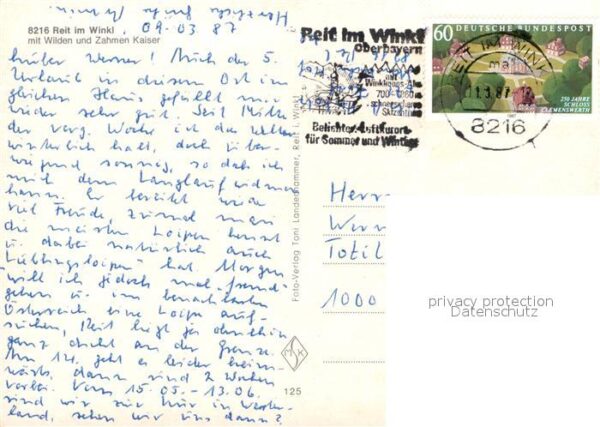 Herzliche Grüße
8216 Reit im Winkl
mit Wilden und Zahmen Kaiser
09.03.87
Lieber Werner! Auch der 5.
Urlaub in diesem Ort im
gleichen Haus gefällt mir
wieder sehr gut. Seit Mitte
der verg. Woche ist das Wetter
winterlich kalt, doch über-
wiegend sonnig, so daß ich
mich dem Langlauf widmen
kann. Er bereitet mir
viel Freude, zumal man
die meisten Loipen kennt
u. dabei natürlich auch
"Lieblingsloipen" hat. Morgen
will ich jedoch mal "fremd-
gehen" u. im benachbarten
Österreich eine Loipe auf-
suchen, Reit liegt ja ohnehin
ganz dicht an der Grenze.
Am 14. geht es leider heim-
wärts, dann sind 2 Wochen
vorbei. Vom 15.05.-13.06.
sind wir zur Kur in
land, sehen wir uns dann?
Foto-Verlag Toni Landenhammer, Reit i. Winkl
MSK
125
Reit im Winkl
Oberbayern
Winklmoos-Alm
Beliebter Luftkurort
für Sommer und Winter
60
DEUTSCHE BUNDESPOST
250 JAHRE
SCHLOSS
CLEMENSWERTH
1987
REIT IM WINKL
8216
Herr
Wern
Totil
1000
privacy protection
Datenschutz